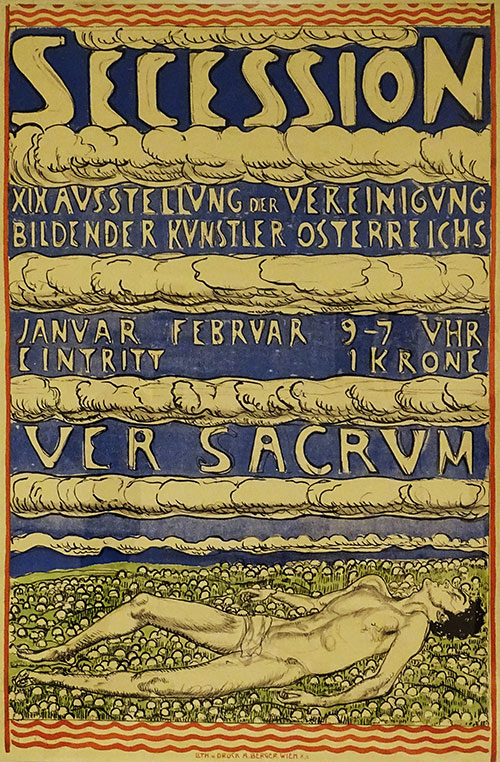 SECESSION
XIX AUSSTELLUNG DER VEREINIGUNG
BILDENDER KVNSTLER OSTERREICHS
JANVAR FEBRVAR 9-7 VHR
EINTRITT 1 KRONE
VER SACRVM
DRUCK A. BERGER WIEN